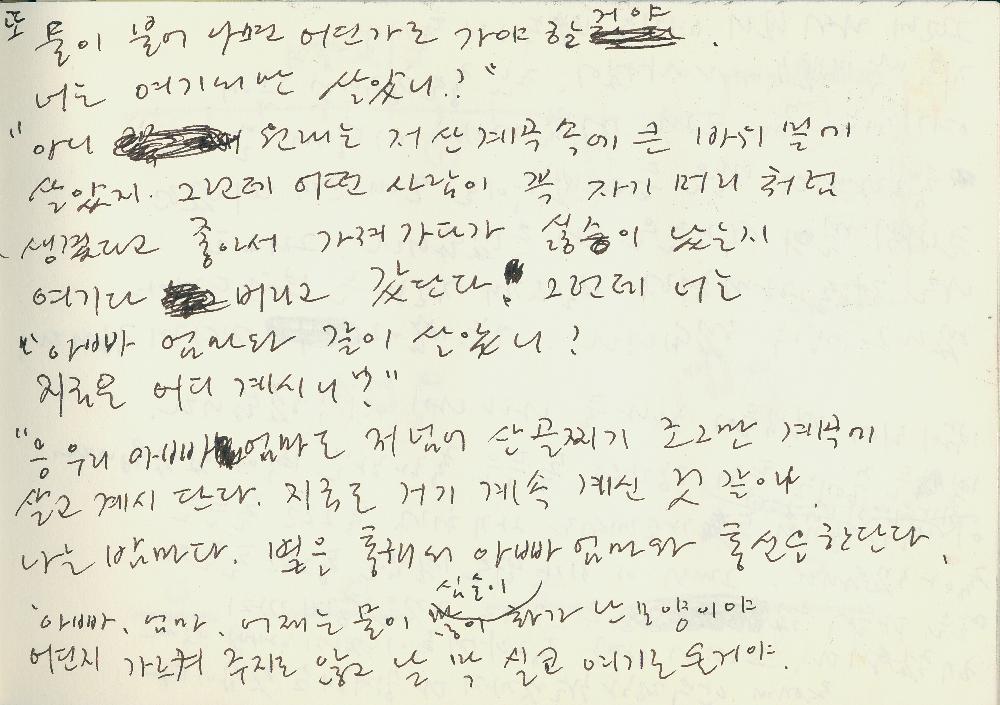 또 물이 불어 나면 어딘가로 가야 할 거야.
너는 여기서만 살았니?"
"아니 원래는 저 산계곡 속에 큰 바위 밑에
살았지. 그런데 어떤 사람이 꼭 자기 머리 처럼
생겼다고 좋아서 가져 가다가 싫증이 났는지
여기다 버리고 갔단다. 그런데 너는
"아빠 엄마와 같이 살았니?
지금은 어디 계시니?"
"응 우리 아빠 엄마도 저 넘어 산골짜기 조그만 계곡에
살고 계시단다. 지금도 거기 계속 계신 것 같아.
나는 밤마다. 별은 통해서 아빠 엄마와 통신은 한단다.
아빠. 엄마. 어제는 물이 심술이 화가 난 모양이야
어딘지 가르켜 주지도 않고 날 막 싣고 여기로 온거야.